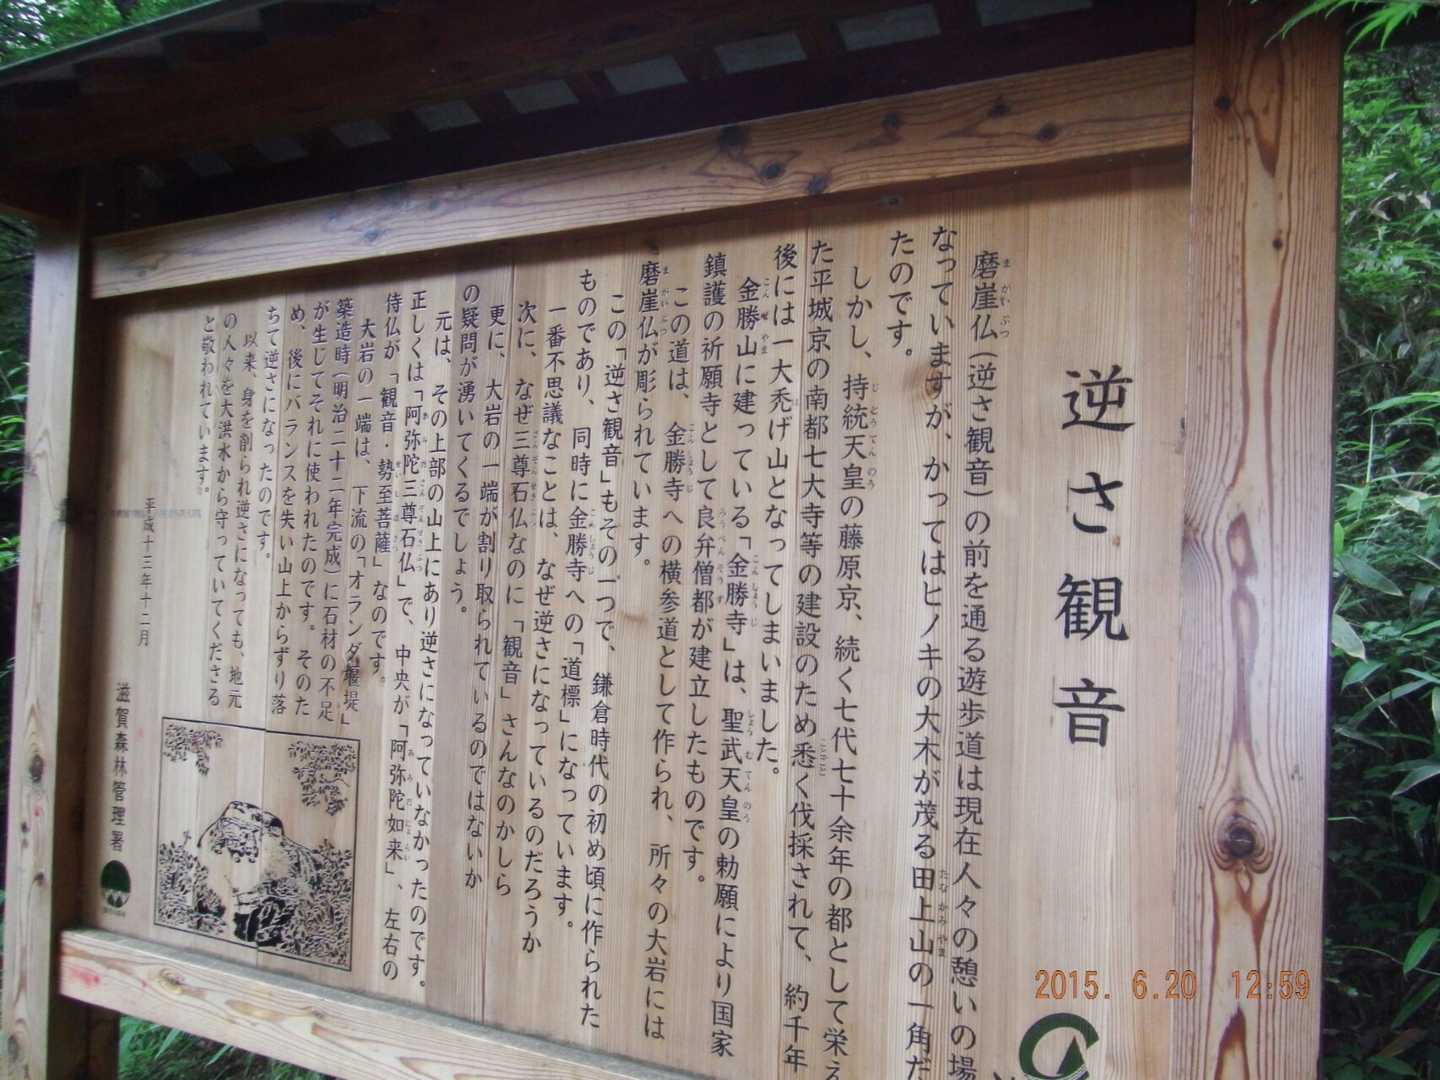 逆さ観音
磨崖仏(逆さ観音)の前を通る遊歩道は現在人々の憩いの場
なっていますが、かってはヒノキの大木が茂る田上山の一角だ
たのです。
しかし、持統天皇の藤原京、続く七代七十余年の都として栄え
た平城京の南都七大寺等の建設のため悉く伐採されて、約千年
後には一大禿げ山となってしまいました。
金勝山に建っている「金勝寺」は、聖武天皇の勅願により国家
鎮護の祈願寺として良弁僧都が建立したものです。
この道は、金勝寺への横参道として作られ、所々の大岩には
磨崖仏が彫られています。
この「逆さ観音」もその一つで、鎌倉時代の初め頃に作られた
ものであり、同時に金勝寺への「道標」になっています。
一番不思議なことは、なぜ逆さになっているのだろうか
次に、なぜ三尊石仏なのに「観音」さんなのかしら
更に、大岩の一端が割り取られているのではないか
の疑問が湧いてくるでしょう。
元は、その上部の山上にあり逆さになっていなかったのです。
正しくは「阿弥陀三尊石仏」で、中央が「阿弥陀如来」、左右の
侍仏が「観音・勢至菩薩」なのです。
大岩の一端は、下流の「オランダ堰堤」
築造時(明治二十二年完成)に石材の不足
が生じてそれに使われたのです。そのた
め、後にバランスを失い山上からずり落
ちて逆さになったのです。
以来、身を削られ逆さになっても、地元
の人々を大洪水から守っていてくださる
と敬われています。
平成十三年十二月
滋賀森林管理署
2015. 6.20 12:59